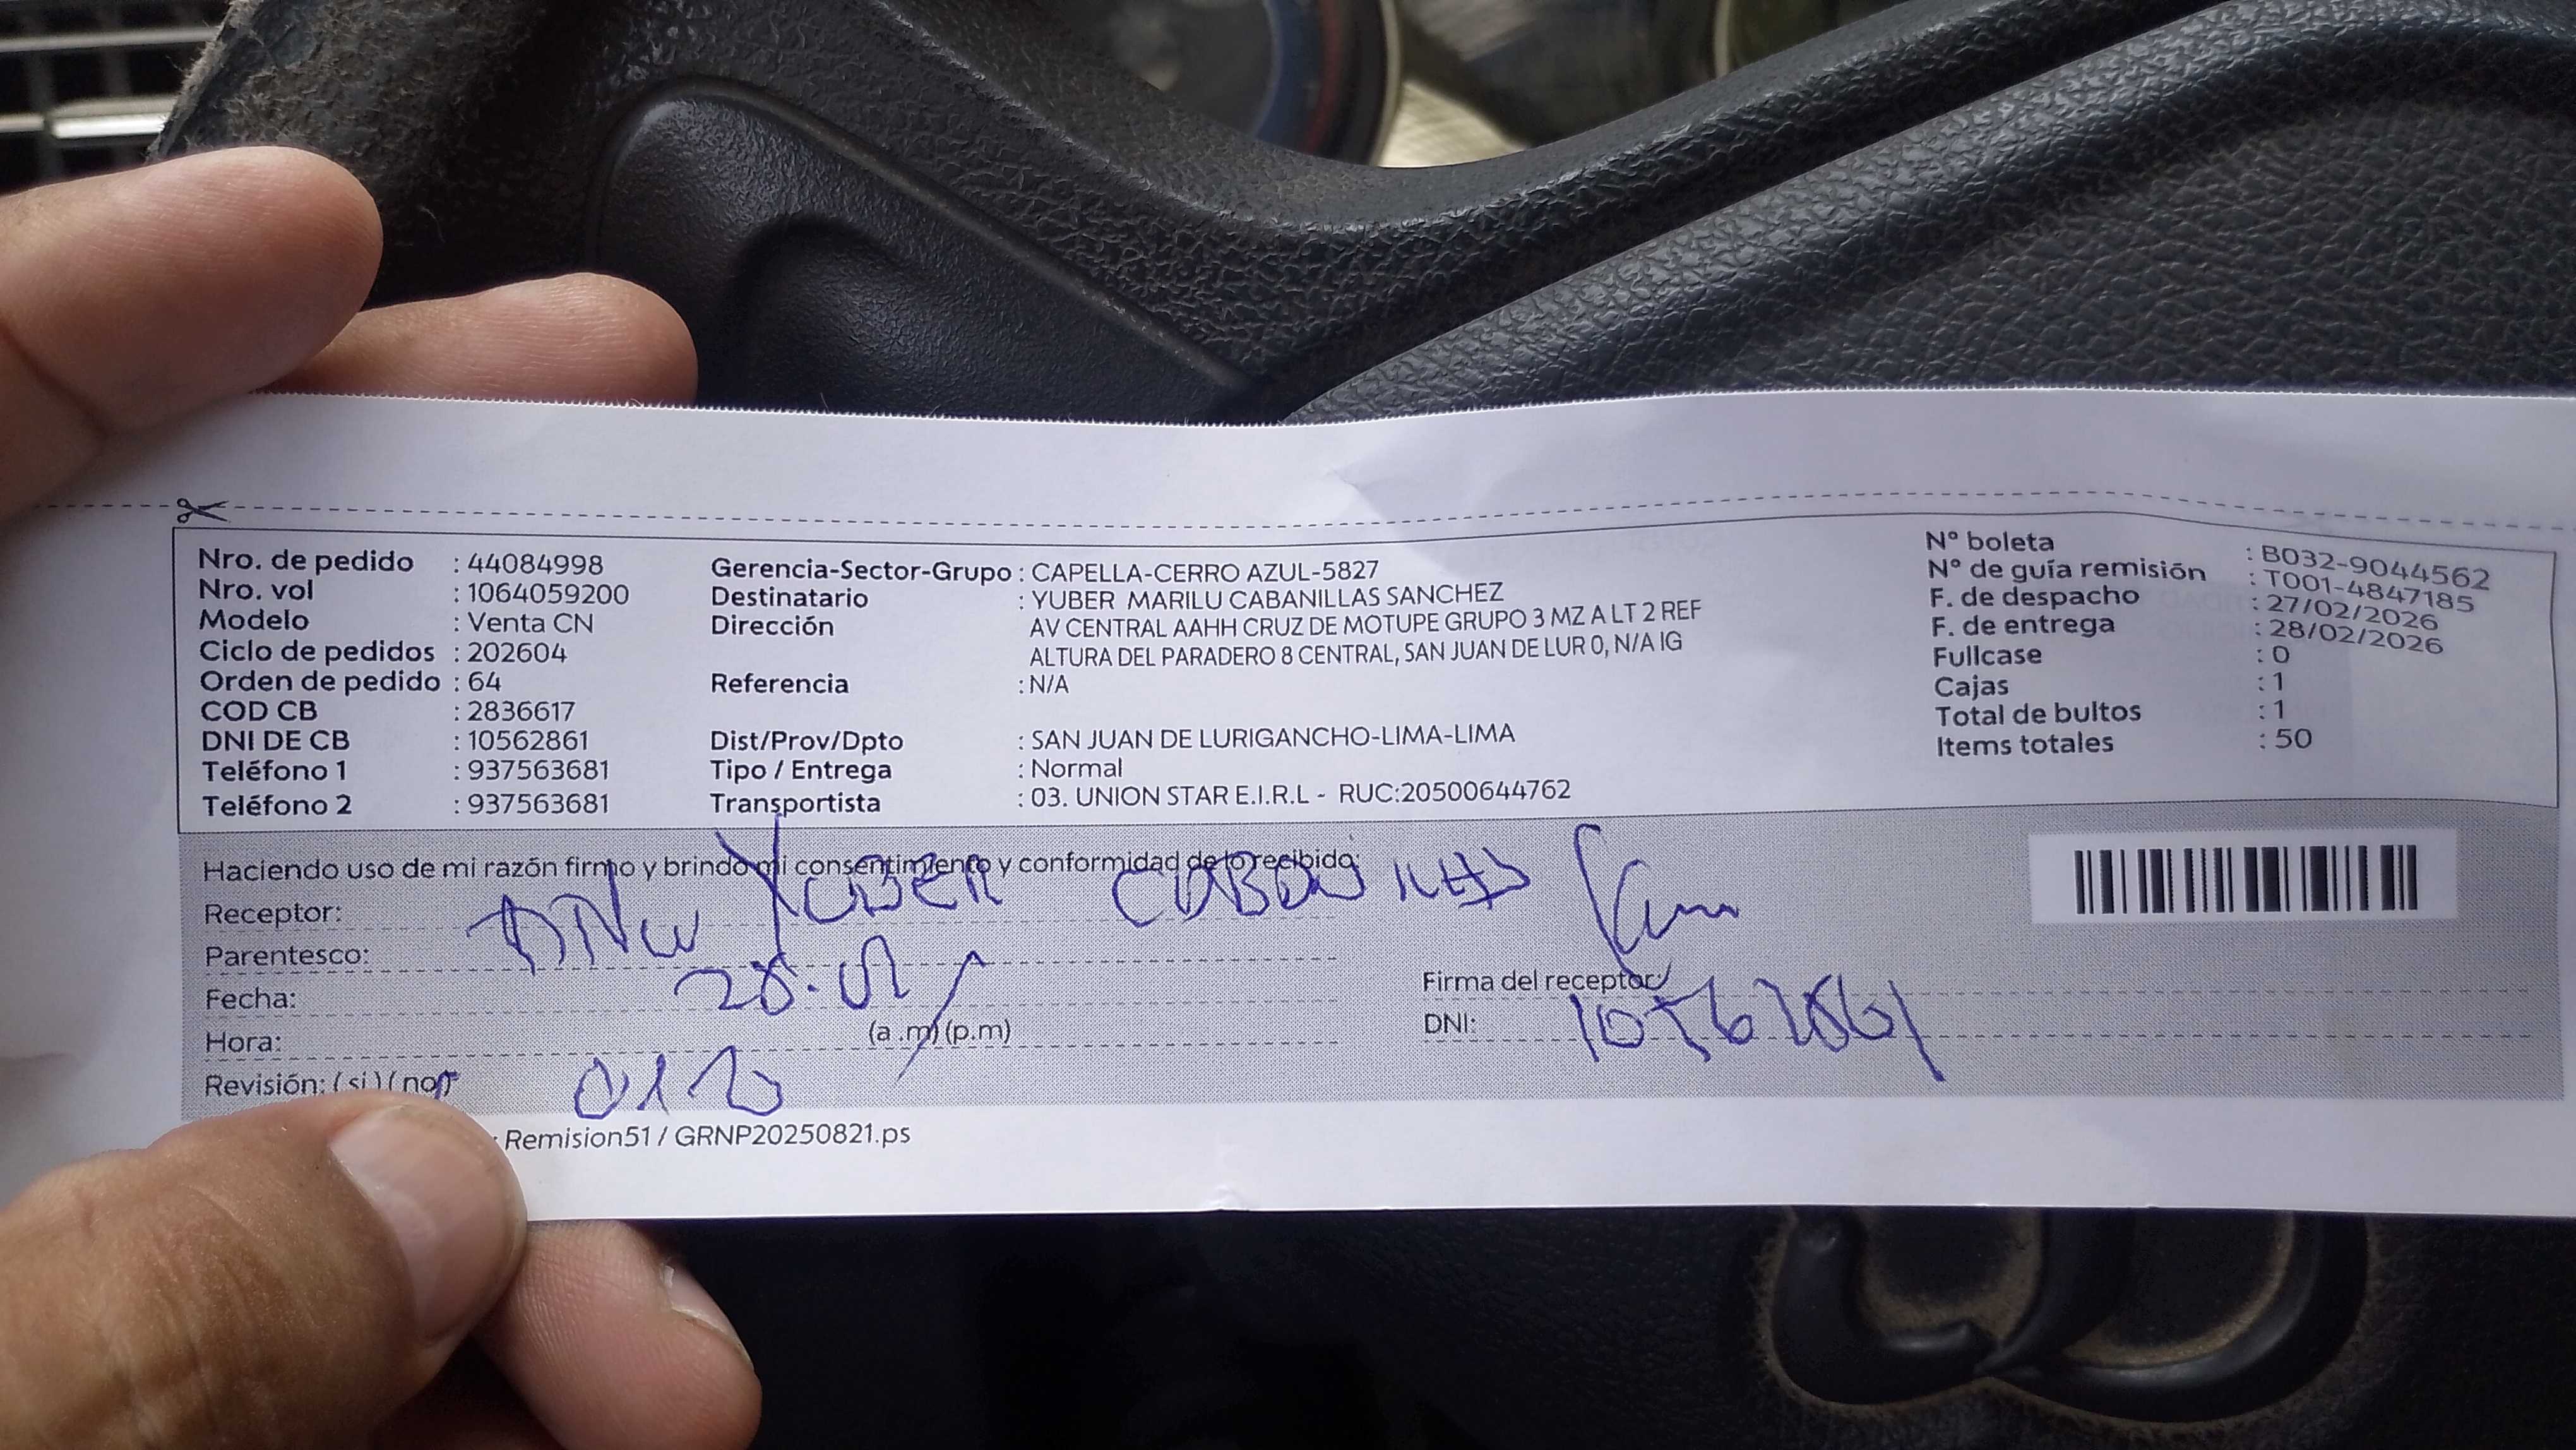 Nro. de pedido : 44084998
Nro. vol : 1064059200
Modelo : Venta CN
Ciclo de pedidos : 202604
Orden de pedido : 64
COD CB : 2836617
DNI DE CB : 10562861
Teléfono 1 : 937563681
Teléfono 2 : 937563681
Gerencia-Sector-Grupo : CAPELLA-CERRO AZUL-5827
Destinatario : YUBER MARILU CABANILLAS SANCHEZ
Dirección AV CENTRAL AAHH CRUZ DE MOTUPE GRUPO 3 MZ A LT 2 REF
ALTURA DEL PARADERO 8 CENTRAL, SAN JUAN DE LUR 0, N/A IG
Referencia : N/A
Dist/Prov/Dpto : SAN JUAN DE LURIGANCHO-LIMA-LIMA
Tipo / Entrega : Normal
Transportista : 03. UNION STAR E.I.R.L - RUC:20500644762
N° boleta : B032-9044562
N° de guía remisión : T001-4847185
F. de despacho : 27/02/2026
F. de entrega : 28/02/2026
Fullcase : 0
Cajas : 1
Total de bultos : 1
Items totales : 50
Haciendo uso de mi razón firmo y brindo mi consentimiento y conformidad de lo recibido:
Receptor: YUBER
Parentesco:
Fecha: 28.
Hora: (a .m) (p.m)
Revisión: ( si ) ( no )
Firma del receptor
DNI: 10562861
Remision51 / GRNP20250821.ps